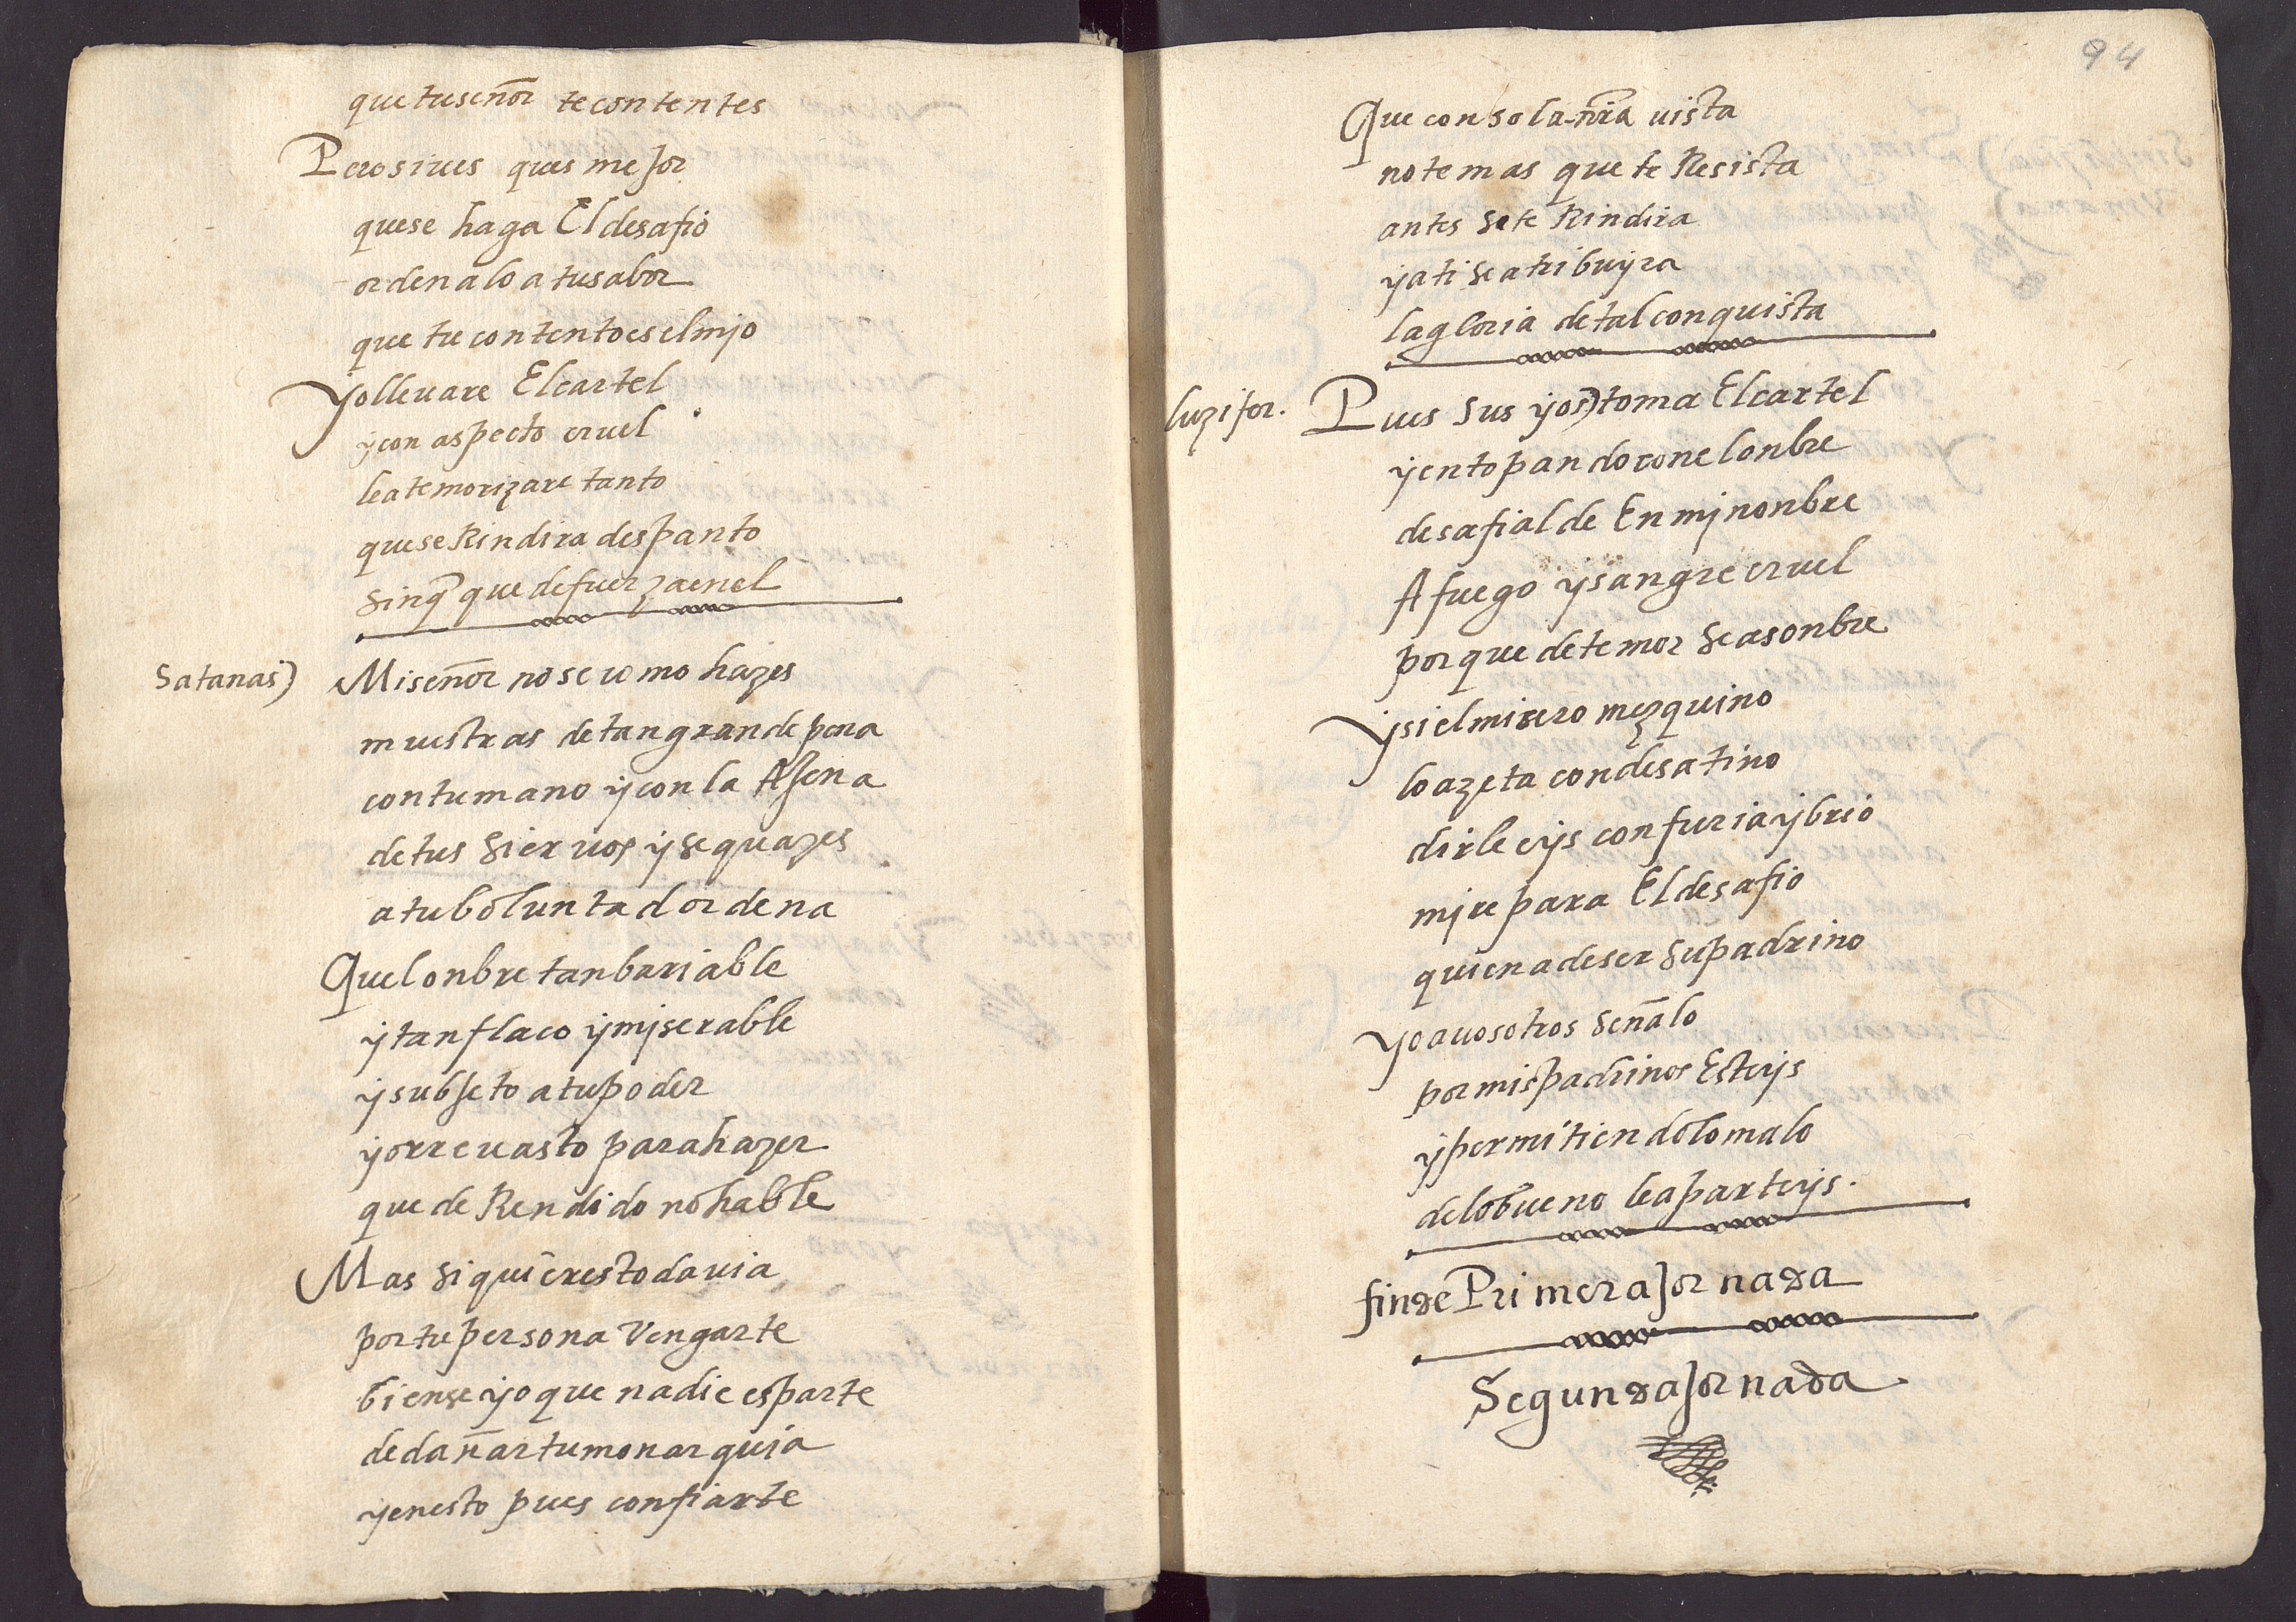 que tu señor te contentes
Pero si ues ques mejor
que se haga El desafio
ordenalo a tu sabor
que tu contento es el mjo
yo lleuare El cartel
y con aspecto cruel
le atemorizare tanto
que se Rindira despanto
sin q̃ quede fuerza en el
Satanas) Mi señor no se como hazes
muestras de tan grande pena
con tu mano y con la Ajena
de tus sieruos y sequazes
a tu boluntad ordena
Quel onbre tan bariable
y tan flaco y mjserable
y subjeto a tu poder
yorre uasto para hazer
que de Rendido no hable
Mas si quieres todauia
por tu persona Vengarte
bien se yo que nadie es parte
de dañar tu monarquia
y en esto pues confiarte
94
Que con sola nr̃a uista
no temas que te Resista
antes se te Rindira
y a ti se atribuyra
la gloria de tal conquista
luzifer. Pues sus yos) toma El cartel
y en topando con el onbre
desafialde En mj nonbre
A fuego y sangre cruel
porque de temor se asonbre
y si el misero mezquino
lo azeta con desatino
dirleeys con furia y brio
mjre para El desafio
quien a de ser su padrino
yo a uosotros señalo
por mis padrinos Esteys
y permitiendo lo malo
de lo bueno le aparteys.
fin de Primera Jornada
Segunda Jornada.